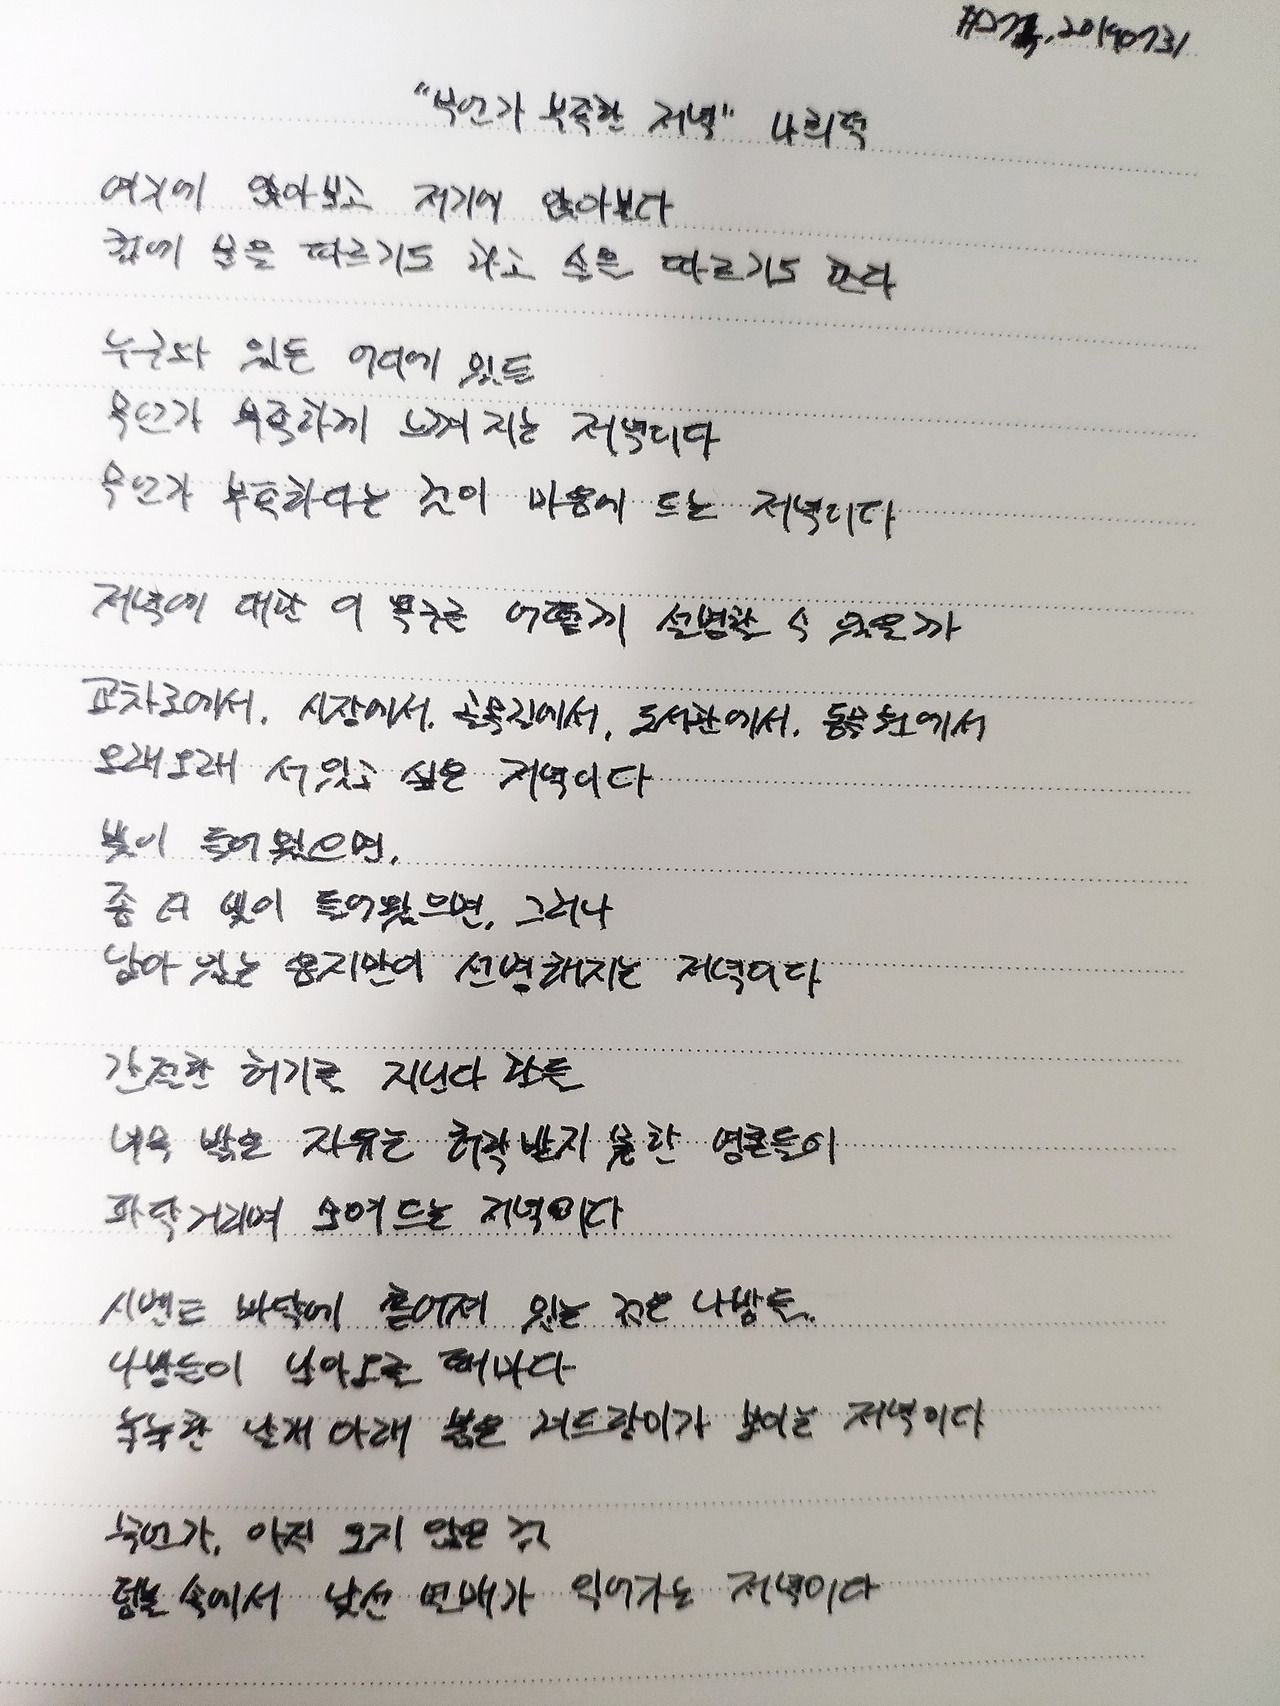 20190731
"무언가 부족한 저녁" 나희덕
여기에 앉아보고 저기에 앉아본다
컵에 물을 따르기도 하고 술을 따르기도 한다
누구와 있든 어디에 있든
무언가 부족하게 느껴지는 저녁이다
무언가 부족하다는 것이 마음에 드는 저녁이다
저녁에 대한 이 욕구를 어떻게 설명할 수 있을까
교차로에서, 시장에서, 골목길에서, 도서관에서, 동물원에서
오래오래 서 있고 싶은 저녁이다
빛이 들어왔으면,
좀 더 빛이 들어왔으면, 그러나
남아 있는 음지만이 선명해지는 저녁이다
간절한 허기로 지난다 한들
너무 밝은 자유는 허락받지 못한 영혼들이
파닥거리며 모여드는 저녁이다
시멘트 바닥에 흩어져 있는 검은 나방들,
나방들이 날아오를 때마다
눅눅한 날개 아래 붉은 겨드랑이가 보이는 저녁이다
무언가, 아직 오지 않은 것
덤불 속에서 낯선 열매가 익어가는 저녁이다